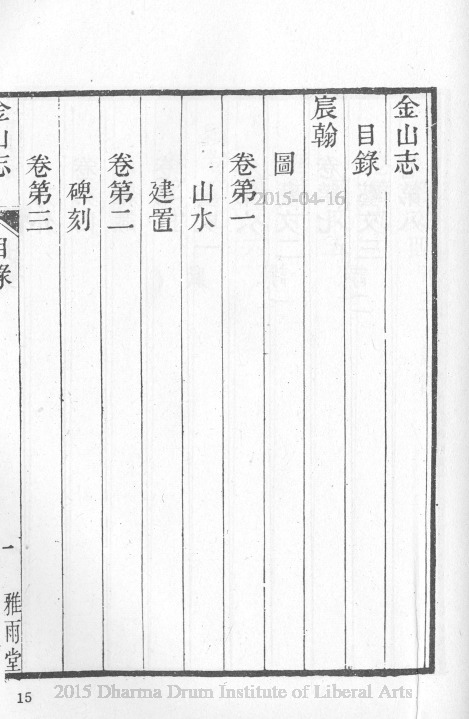 金山志
目錄
宸翰
圖
卷第一
山水
建置
卷第二
碑刻
卷第三
金山志
目錄
一
雅雨堂
15
2015-04-16
2015 Dharma Drum Institute of Liberal Arts